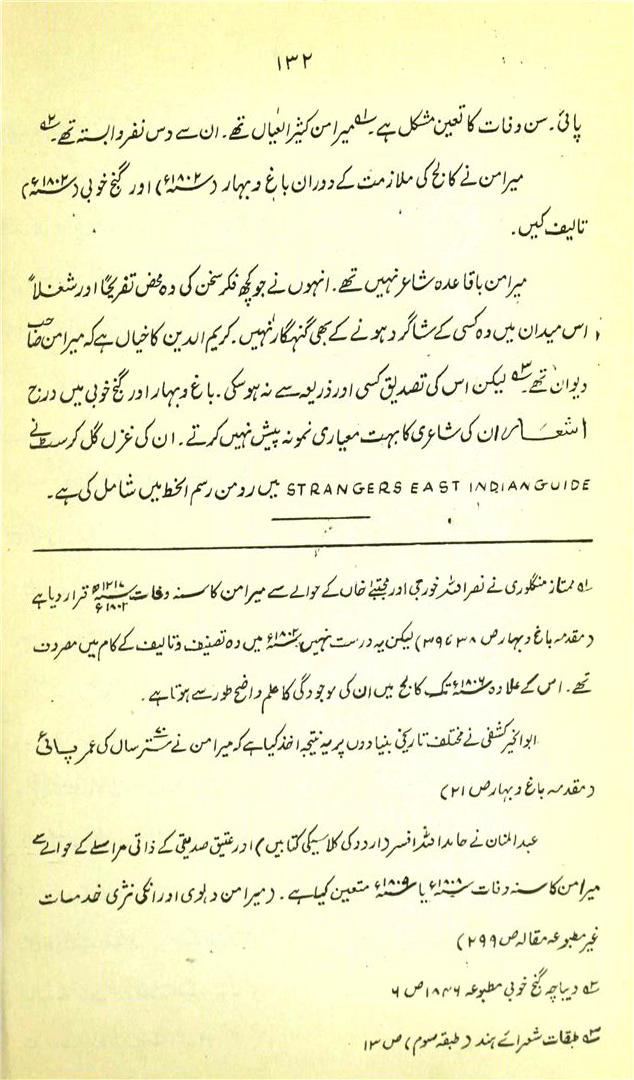 ۱۳۲
پائی۔ سن وفات کا تعین مشکل ہے۔ ؎۱ میرامن کثیرالعیال تھے۔ ان سے دس نفر وابستہ تھے۔ ؎۲
میرامن نے کالج کی ملازمت کے دوران باغ و بہار (۱۸۰۲ء) اور گنج خوبی (۱۸۰۲ء)
تالیف کیں۔
میرامن باقاعدہ شاعر نہیں تھے۔ انہوں نے جو کچھ فکر سخن کی وہ محض تفریحاً اور شغلاً
اس میدان میں وہ کسی کے شاگرد ہونے کے بھی گنہگار نہیں۔ کریم الدین کا خیال ہے کہ میرامن صاحب
دیوان تھے۔ ؎۳ لیکن اس کی تصدیق کسی اور ذریعہ سے نہ ہوسکی۔ باغ و بہار اور گنج خوبی میں درج
اشعار ان کی شاعری کا بہت معیاری نمونہ پیش نہیں کرتے۔ ان کی غزل گل کرسٹ نے
STRANGERS EAST INDIAN GUIDE میں رومن رسم الخط میں شامل کی ہے۔
؎۱ ممتاز منگلوری نے نصراللہ خورجی اور مجتبےٰ خاں کے حوالے سے میرامن کا سنہ وفات ۱۲۱۷ھ ۱۸۰۲ء قرار دیا ہے
(مقدمہ باغ و بہار ص ۳۸ تا ۳۹) لیکن یہ درست نہیں ۱۸۰۲ء میں وہ تصنیف و تالیف کے کام میں مصروف
تھے۔ اس کے علاوہ ۱۸۰۶ء تک کالج میں ان کی موجودگی کا علم واضح طور سے ہوتا ہے۔
ابوالخیر کشفی نے مختلف تاریخی بنیادوں پر یہ نتیجہ اخذ کیا ہے کہ میرامن نے ستر ۷۰ سال کی عمر پائی
(مقدمہ باغ و بہار ص ۲۱)
عبدالمنان نے حامداللہ افسر (اردو کی کلاسیکی کتابیں) اور عتیق صدیقی کے ذاتی مراسلے کے حوالے سے
میرامن کا سنہ وفات ۱۸۰۸ء یا ۱۸۰۹ء متعین کیا ہے۔ (میرامن دہلوی اور انکی نثری خدمات
غیر مطبوعہ مقالہ ص ۲۹۹)
؎۲ دیباچہ گنج خوبی مطبوعہ ۱۸۴۶ ص ۶
؎۳ طبقات شعرائے ہند (طبقہ سوم) ص ۱۳